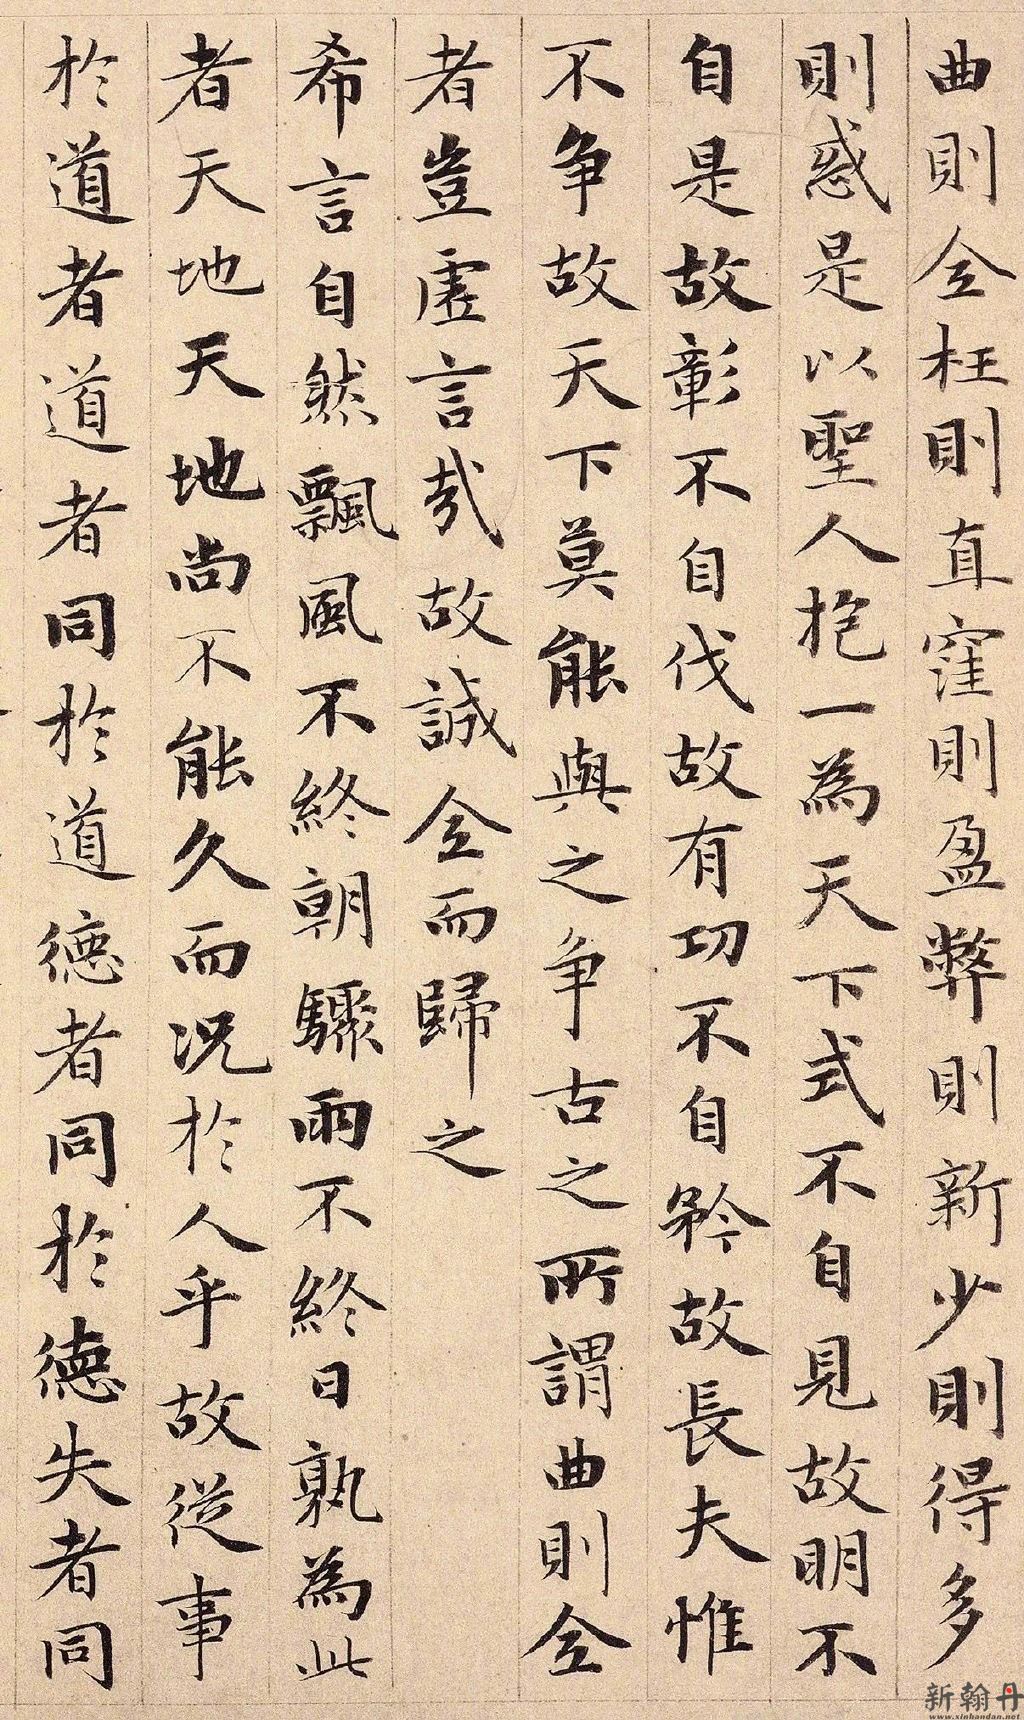 曲則全枉則直窪則盈弊則新少則得多
則惑是以聖人抱一為天下式不自見故明不
自是故彰不自伐故有功不自矜故長夫惟
不争故天下莫能與之争古之所謂曲則全
者豈虛言哉故誠全而歸之
希言自然飄風不終朝驟雨不終日孰為此
者天地天地尚不能久而況於人乎故從事
於道者道者同於道德者同於德失者同
新翰丹
www.xinhandan.net